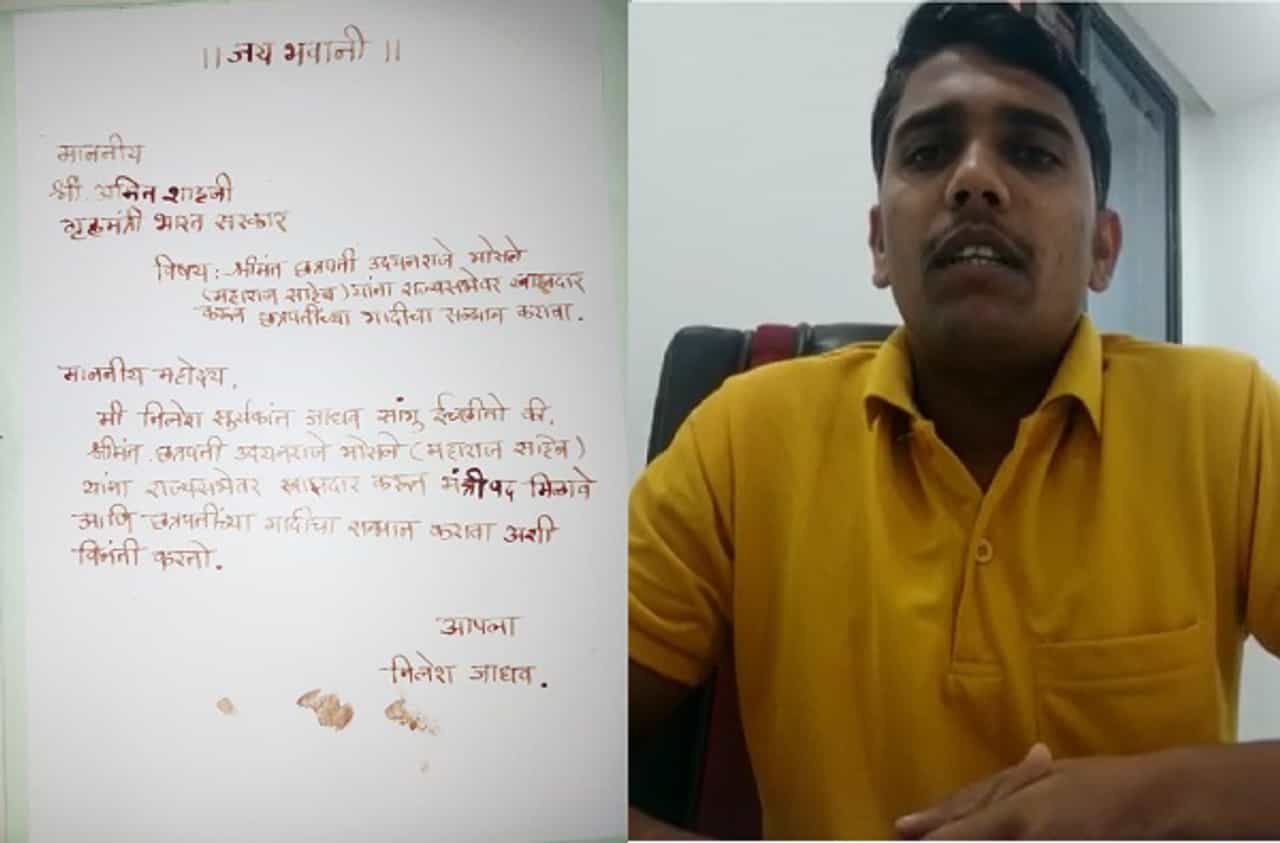 ||जय भवानी||
माननीय
श्री. अमित शाहजी
गृहमंत्री भारत सरकार
विषय: श्रीमंत छत्रपती उदयनराजे भोसले
(महाराज साहेब) यांना राज्यसभेवर खासदार
करून छत्रपतींच्या गादीचा सन्मान करावा.
माननीय महोदय,
मी निलेश सुर्यकांत जाधव सांगु ईच्छीतो की,
श्रीमंत छत्रपती उदयनराजे भोसले (महाराज साहेब)
यांना राज्यसभेवर खासदार करून मंत्रीपद मिळावे
आणि छत्रपतींच्या गादीचा सन्मान करावा अशी
विनंती करतो.
आपला
निलेश जाधव.